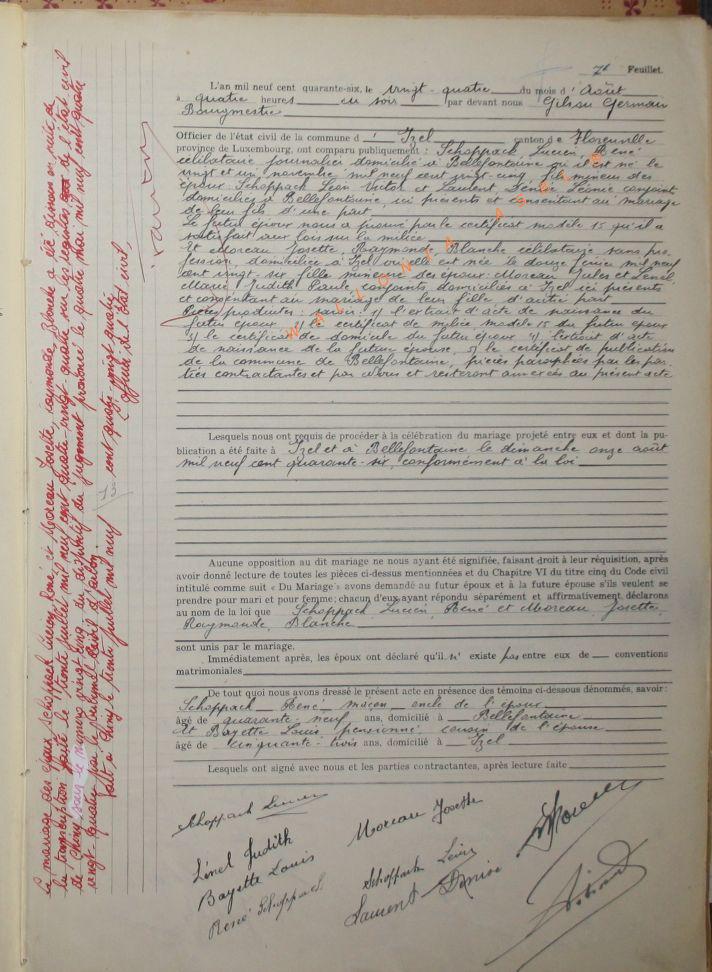 7e Feuillet.
L'an mil neuf cent quarante-six, le vingt-quatre du mois d'Août
à quatre heures du soir par devant nous Gilson Germain
Bourgmestre
Officier de l'état civil de la commune d' Izel canton de Florenville
province de Luxembourg, ont comparu publiquement : Schoppach, Lucien, René
célibataire journalier domicilié à Bellefontaine où il est né le
vingt et un novembre mil neuf cent vingt-cinq, fils mineur des
époux Schoppach Léon Victor et Laurent, Denise Léonie conjoints
domiciliés à Bellefontaine, ici présents et consentant au mariage
de leur fils d'une part.
Le futur époux nous a prouvé par le certificat modèle 15 qu'il a
satisfait aux lois sur la milice
Et Moreau, Josette, Raymonde, Blanche célibataire sans pro-
fession, domiciliée à Izel où elle est née le douze mil neuf
cent vingt-six fille mineure des époux Moreau Jules et Lénel
Marie Judith Paule conjoints domiciliés à Izel ici présents
et consentant au mariage de leur fille d'autre part
Pièces produites : savoir : 1) l'extrait d'acte de naissance du
futur époux 2) le certificat de milice modèle 15 du futur époux
3) le certificat de domicile du futur époux 4) l'extrait d'acte
de naissance de la future épouse, 5) le certificat de publication
de la commune de Bellefontaine, pièces paraphées par les par-
ties contractantes et par nous et resteront annexées au présent acte
WALLONIA ASBL
Lesquels nous ont requis de procéder à la célébration du mariage projeté entre eux et dont la pu-
blication a été faite à Izel et à Bellefontaine le dimanche onze août
mil neuf cent quarante-six conformément à la loi
Aucune opposition au dit mariage ne nous ayant été signifiée, faisant droit à leur réquisition, après
avoir donné lecture de toutes les pièces ci-dessus mentionnées et du Chapitre VI du titre cinq du Code civil
intitulé comme suit « Du Mariage » avons demandé au futur époux et à la future épouse s'ils veulent se
prendre pour mari et pour femme; chacun d'eux ayant répondu séparément et affirmativement, déclarons
au nom de la loi que Schoppach, Lucien, René et Moreau, Josette,
Raymonde, Blanche
sont unis par le mariage.
Immédiatement après, les époux ont déclaré qu'il n'existe pas entre eux de conventions
matrimoniales
De tout quoi nous avons dressé le présent acte en présence des témoins ci-dessous dénommés, savoir :
Schoppach René maçon oncle de l'époux
âgé de quarante-neuf ans, domicilié à Bellefontaine
Et Bayette Louis pensionné cousin de l'épouse
âgé de cinquante-trois ans, domicilié à Izel
Lesquels ont signé avec nous et les parties contractantes, après lecture faite
Schoppach Lucien
Moreau Josette
Lénel Judith
Bayette Louis
Schoppach Léon
René Schoppach
Laurent Denise
Le mariage des époux Schoppach Lucien, René et Moreau Josette, Raymonde, Blanche a été dissous en suite de
la transcription faite le trente juillet mil neuf cent quatre-vingt-quatre sur les registres de l'état civil
de Chiny sous le numéro vingt-cinq du dispositif du jugement prononcé le quatre mai mil neuf cent quatre
vingt-quatre par le tribunal civil d'Arlon.
Fait à Chiny le trente juillet mil neuf cent quatre-vingt-quatre
L'officier de l'état civil,